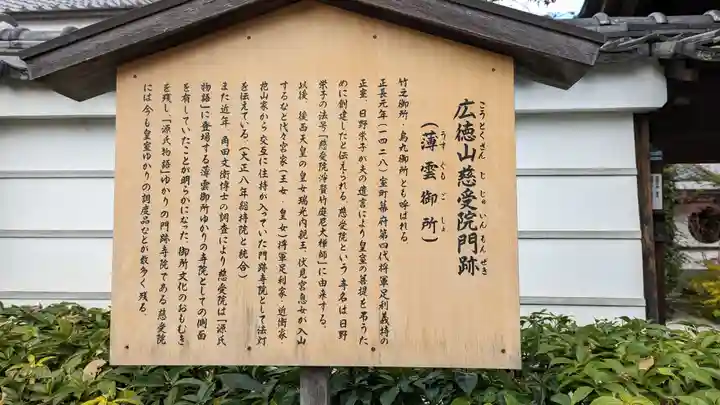 広徳山慈受院門跡
こうとくざん じじゅいんもんぜき
(薄雲御所)
うすぐもごしょ
竹之御所・烏丸御所とも呼ばれる
正長元年(一四二八)室町幕府第四代将軍足利義持の
正室、日野栄子が夫の遺言により皇室の菩提を弔うた
めに創建したと伝えられる。慈受院という寺名は日野
栄子の法号「慈受院浄賢竹庭尼大禅師」に由来する。
以後、後西天皇の皇女瑞光内親王、伏見宮息女が入山
するなど代々宮家(王女・皇女)将軍足利家・近衛家
花山家から交互に住持が入っていた門跡寺院として法灯
を伝えている。(大正八年総持院と統合)
また近年、角田文衛博士の調査により慈受院は「源氏
物語」に登場する薄雲御所ゆかりの寺院としての側面
を有していたことが明らかになった。御所文化のおもむき
を残し、「源氏物語」ゆかりの門跡寺院である慈受院
には今も皇室ゆかりの調度品などが数多く残る。